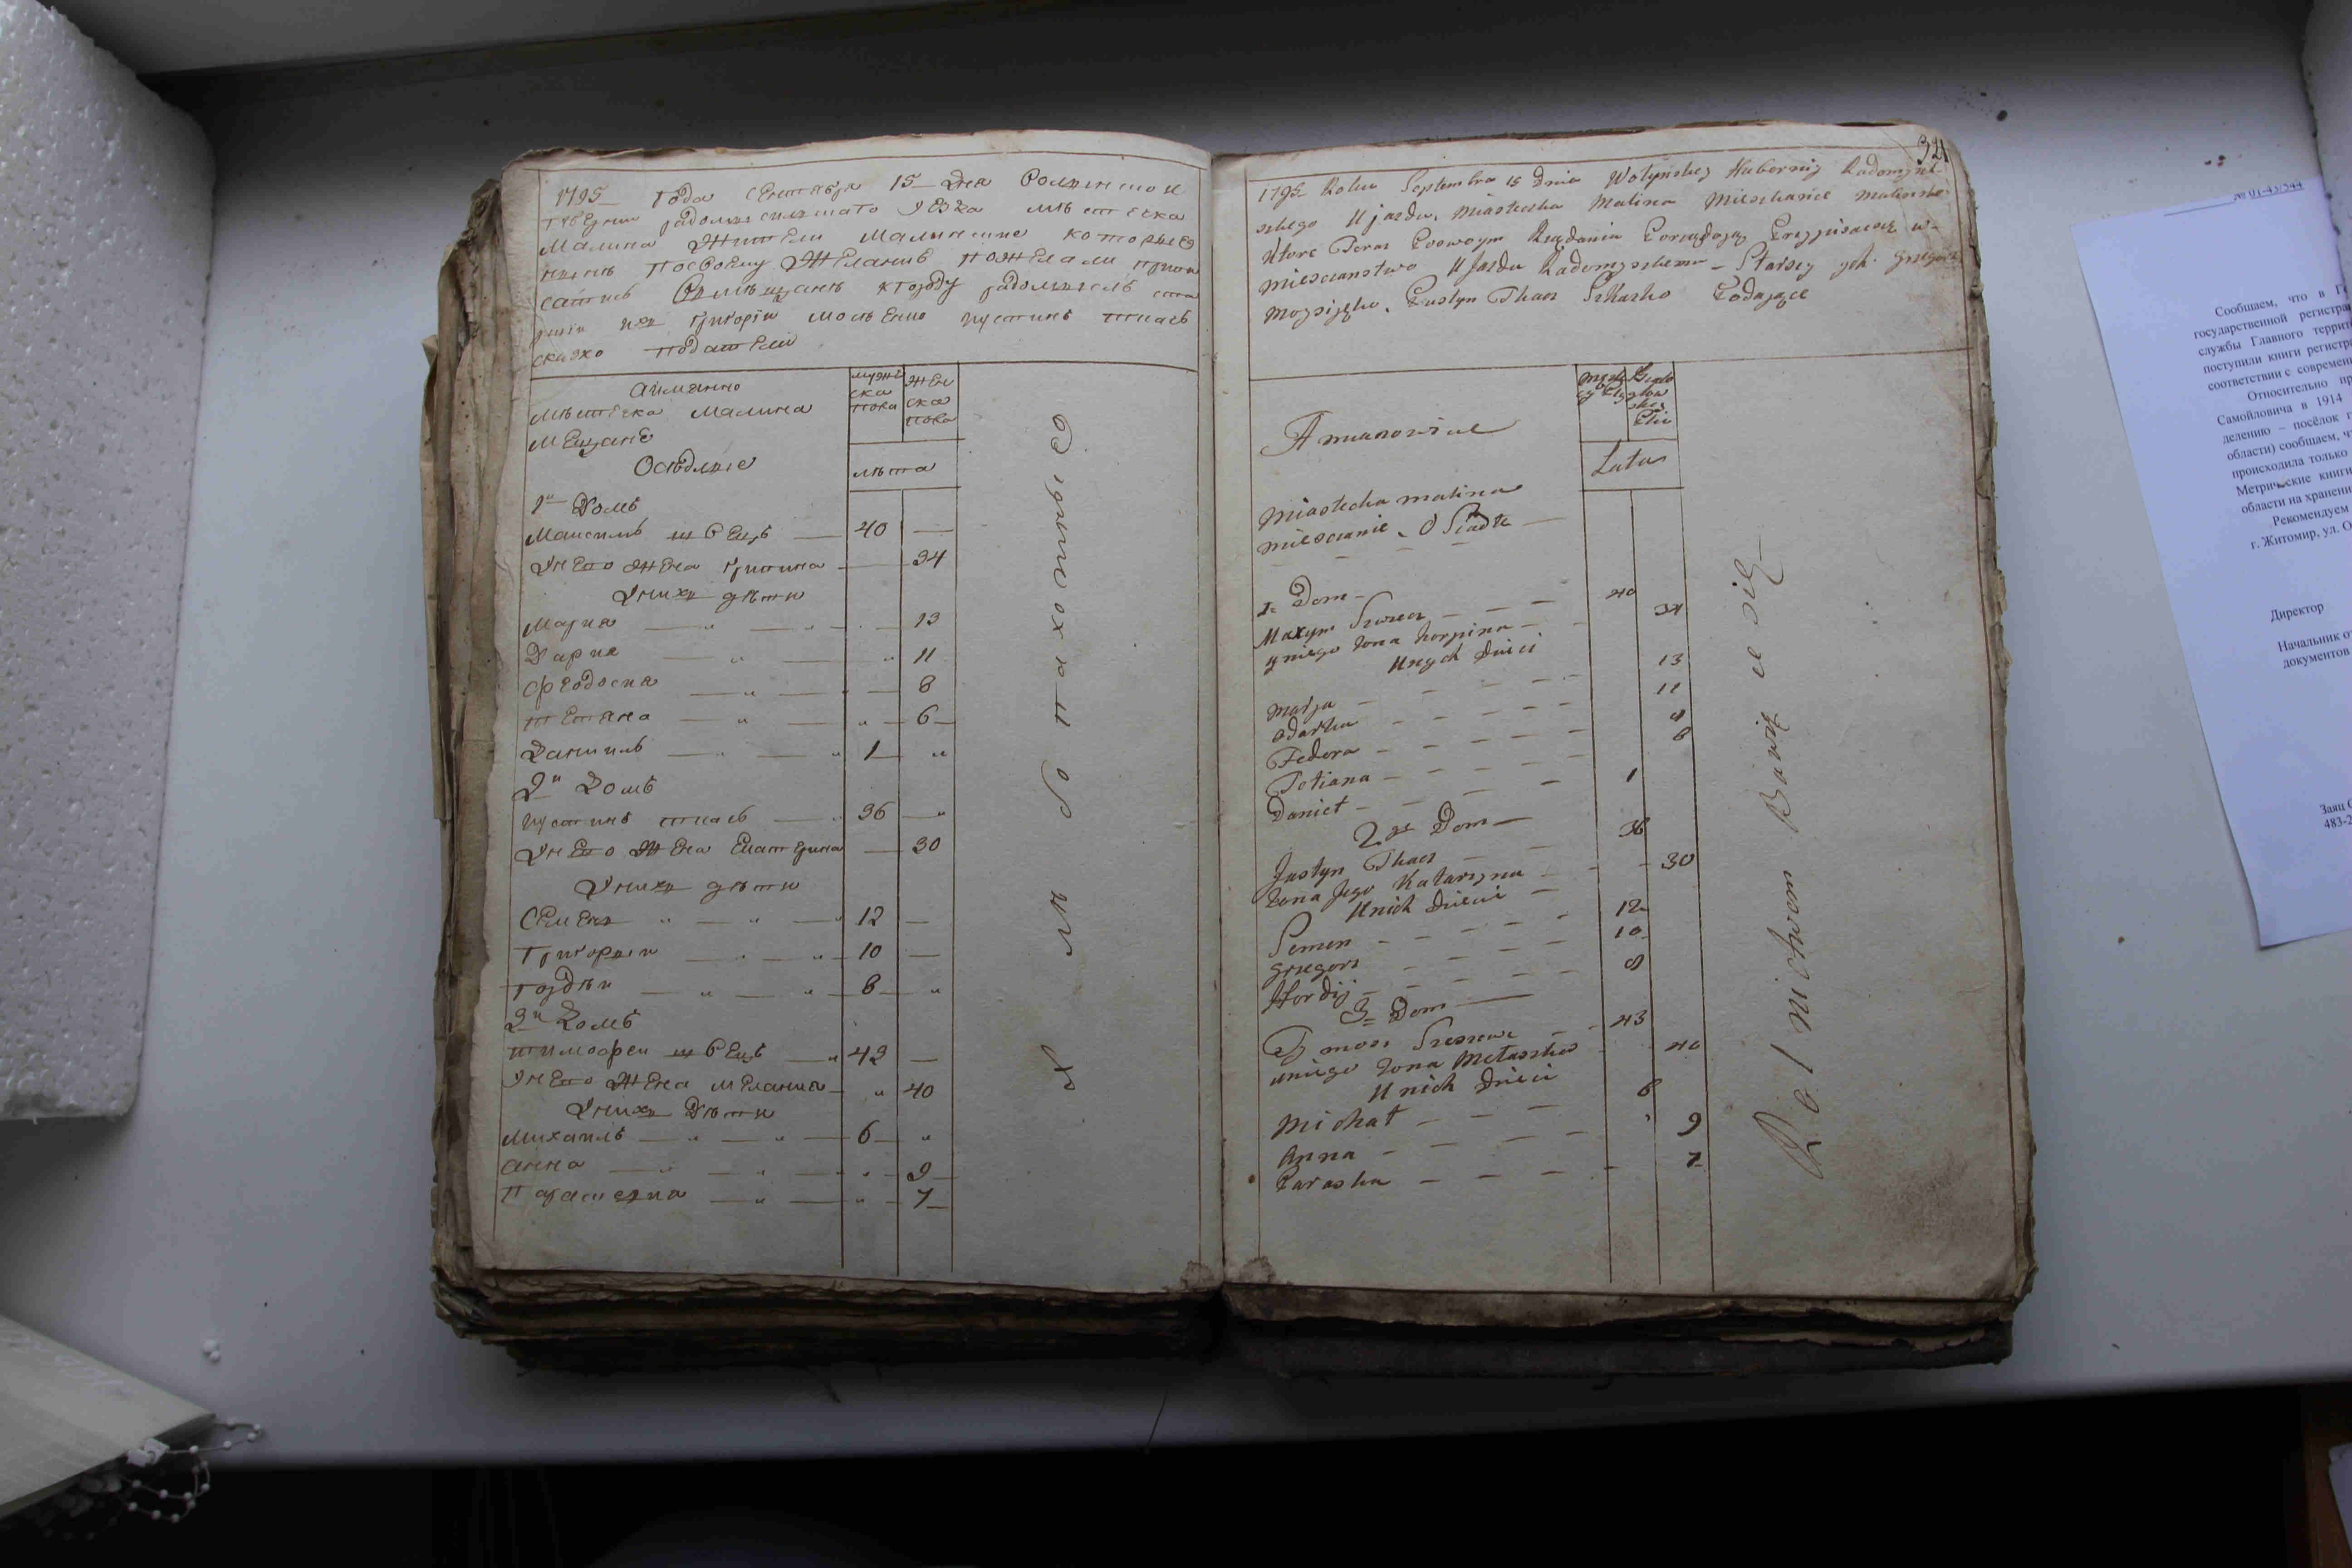 1795 Года Сентебря 15 дня Волынской
губернии радомысльшаго уезда мѣстечка
Малина Жители Малинские которые
нынѣ посвоему Желанию пожелали припи
сатись
сказко податели
Аимянно
мѣстечка Малина
мещане
Осѣдлые
мужеска пола
женска пола
лѣта
1й Домъ
Максимъ швецъ 40
Унего жена Гришина 34
Унихъ дѣти
Мария 13
Дария 11
Феодосия 8
тетяна 6
Даниилъ 1
2й Домъ
Иустинъ ткачъ 36
Унего жена Екатерина 30
Унихъ дѣти
Семенъ 12
Григорыи 10
Гордѣи 8
3й Домъ
тимофеи швецъ 43
Унего жена мелания 40
Унихъ дѣти
михаилъ 6
анна 9
Параскевиа 7
Хлѣбопахотные
321
1795 Roku Septembra 15 Dnia Wołyńskey Hubernij Radomysl
skego Ujazdu, Miasteczka Malina Mieszkańce Malinske
Ktore Teraz Poswoym Rządania Porządają Przypisacsię w
miescanstwo Ujazdu Radomyskemu Starszy
Justyn Tkacz Skazko Podające
Amianowice
męskey Płci
Białogłowskey Płci
Lata
Miasteczka Malina
miescanie, OSiadłe
1 Dom
Maxym Szwecz 40
yniego żona horpina 34
Unych Dzieci
Marja 13
Odarka 11
Fedora 8
Totiana 6
Danieł 1
2gi Dom
Justyn Tkacz 36
żona Jego Katarzyna 30
Unich Dzieci
Semen 12
Grzegorz 10
Hordij 8
3 Dom
Tymosz Szewc 43
uniego żona Mełaszka 40
Unich Dzieci
Michał 6
Anna 9
Paraska 7
Rolnictwem Bawiące się
№ 01-43/544
Сообщаем, что в
государственной регистра
службы Главного террит
поступили книги регистра
соответствии с современ
Относительно
Самойловича в 1914
делению – посёлок
области) сообщаем,
происходила только
Метрические книги
области на хранени
Рекомендуем
г. Житомир, ул. О
Директор
Начальник
документов
Заяц
483-2